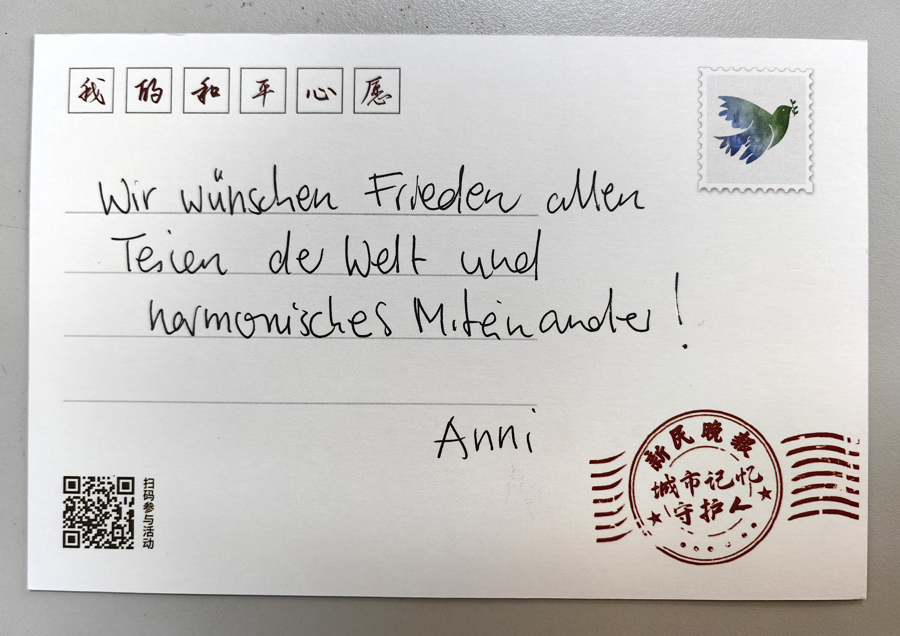 我的和平心愿
Wir wünschen Frieden allen
Teilen der Welt und
harmonisches Miteinander!
Anni
扫码参与活动
新民晚报
城市记忆
守护人